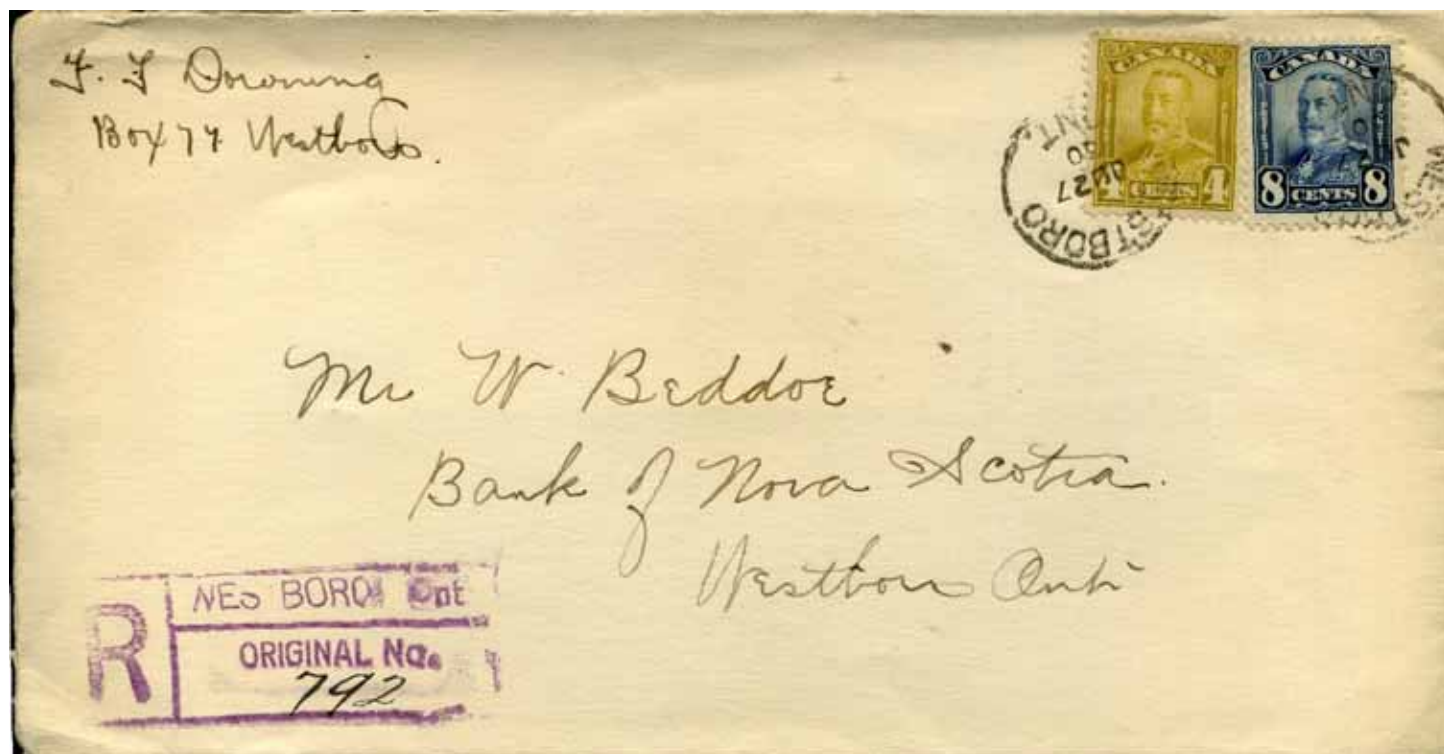 F. F Downing
Box 77 Westboro.
CANADA
4 CENTS 4
CANADA
8 CENTS 8
WESTBORO
JU 27
30
ONT
WESTBORO
Mr W. Beddoe
Bank of Nova Scotia.
Westboro Ont
R
WES BORO Ont
ORIGINAL No.
792